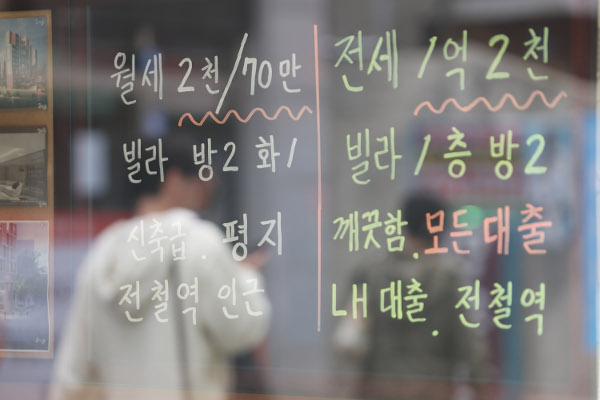 월세 2천/70만
빌라 방2 화1
신축급. 평지
전철역 인근
전세 1억 2천
빌라 1층 방2
깨끗함. 모든대출
LH대출. 전철역